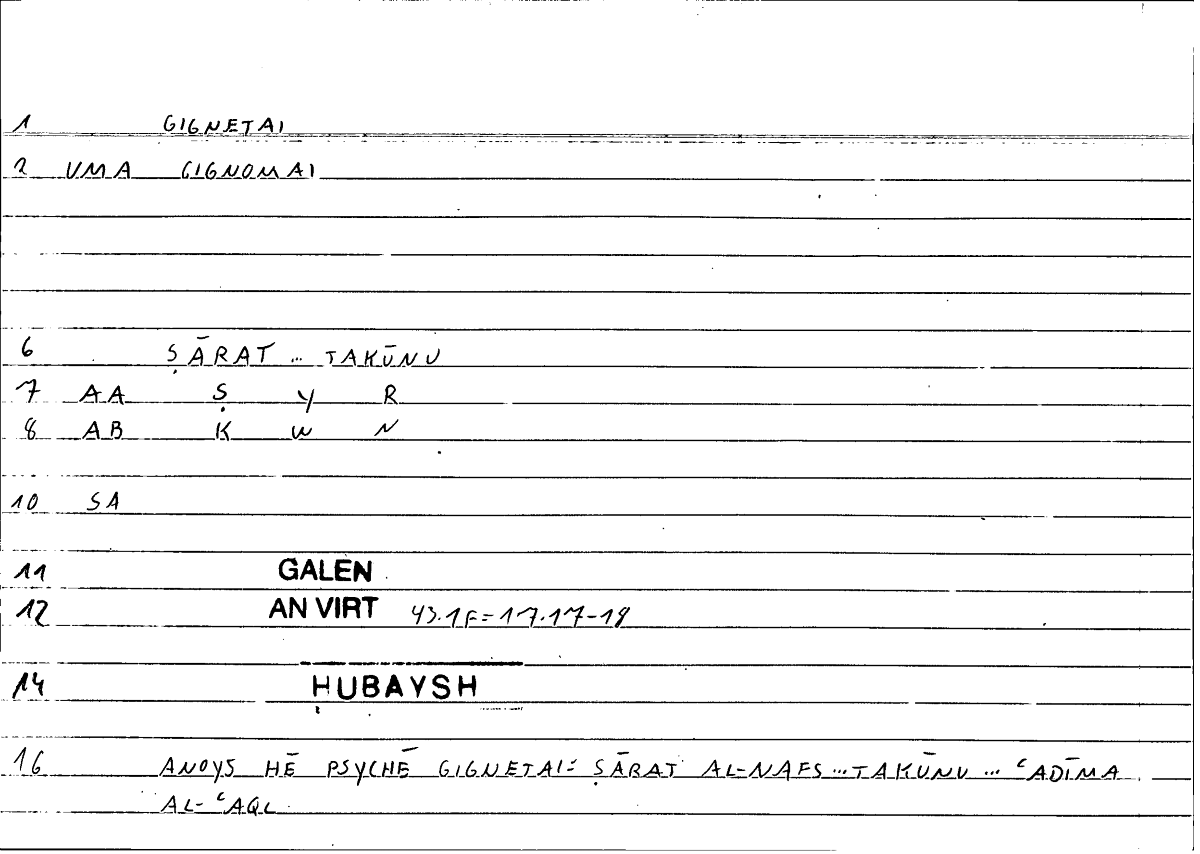 1 GIGNETAI
2 VMA GIGNOMAI
6 ṢĀRAT … TAKŪNU
7 AA Ṣ Y R
8 AB K W N
10 SA
11 GALEN
12 AN VIRT 43.1F=17.17-18
14 ḤUBAYSH
16 ANOYS HĒ PSYCHĒ GIGNETAI: ṢĀRAT AL-NAFS … TAKŪNU … ʿADĪMA
AL-ʿAQL